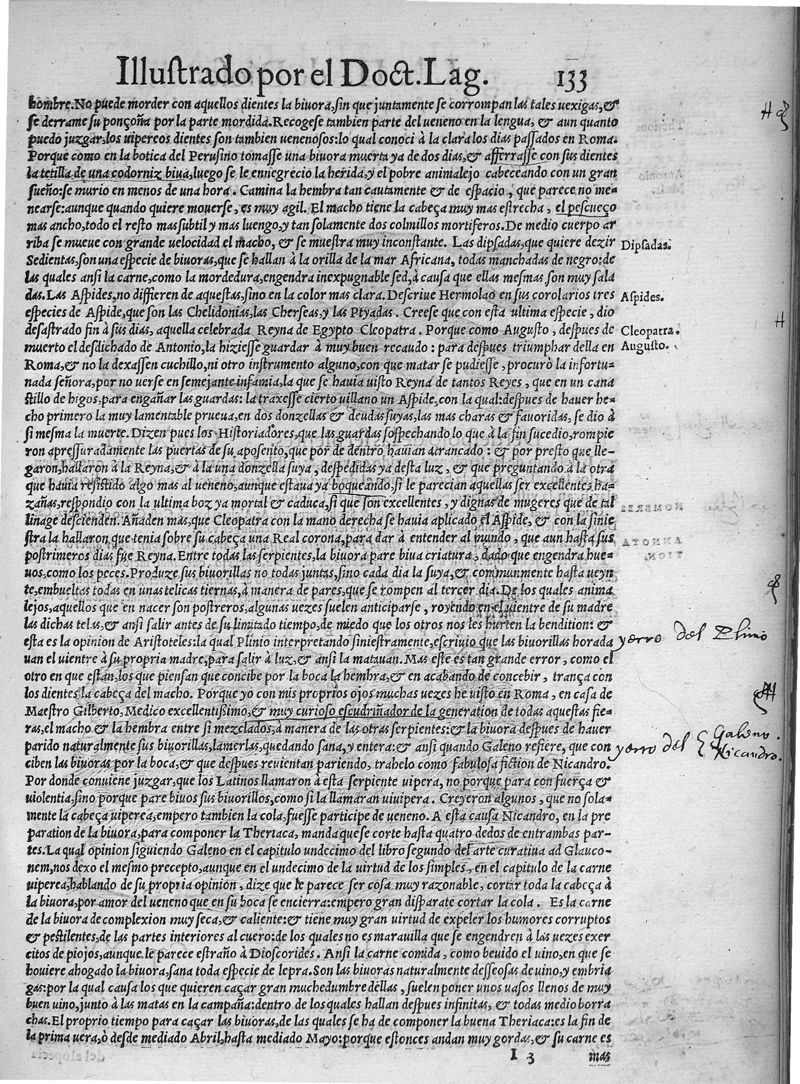 Illustrado por el Doct. Lag. 133
hombre. No puede morder con aquellos dientes la biuora, sin que juntamente se corrompan las tales uexigas, &
se derrame su ponçoña por la parte mordida. Recogese tambien parte del ueneno en la lengua, & aun quanto
puedo juzgar, los uipereos dientes son tambien uenenosos: lo qual conoci à la clara los dias passados en Roma.
Porque como en la botica del Perusino tomasse una biuora muerta ya de dos dias, & afferrasse con sus dientes
la tetilla de una codorniz biua, luego se le ennegreciò la herida, y el pobre animalejo cabeceando con un gran
sueño: se murio en menos de una hora. Camina la hembra tan cautamente & de espacio, que parece no me-
nearse: aunque quando quiere mouerse, es muy agil. El macho tiene la cabeça muy mas estrecha, el pescueço
mas ancho, todo el resto mas subtil y mas luengo, y tan solamente dos colmillos mortiferos. De medio cuerpo ar
riba se mueue con grande uelocidad el macho, & se muestra muy inconstante. Las dipsadas, que quiere dezir
Sedientas, son una especie de biuoras, que se hallan à la orilla de la mar Africana, todas manchadas de negro: de
las quales ansi la carne, como la mordedura, engendra inexpugnable sed, à causa que ellas mesmas son muy sala
das. Las Aspides, no differen de aquestas, sino en la color mas clara. Descriue Hermolao en sus corolarios tres
especies de Aspide, que son las Chelidonias, las Cherseas, y las Ptyadas. Creese que con esta ultima especie, dio
desastrado fin à sus dias, aquella celebrada Reyna de Egypto Cleopatra. Porque como Augusto, despues de
muerto el desdichado de Antonio, la hiziesse guardar à muy buen recaudo: para despues triumphar della en
Roma, & no la dexassen cuchillo, ni otro instrumento alguno, con que matar se pudiesse, procurò la infortu-
nada señora, por no uerse en semejante infamia, la que se hauia uisto Reyna de tantos Reyes, que en un cana
stillo de higos, para engañar las guardas: la traxesse cierto uillano un Aspide, con la qual: despues de hauer he-
cho primero la muy lamentable prueua, en dos donzellas & deudas suyas, las mas charas & fauoridas, se dio à
si mesma la muerte. Dizen pues los Historiadores, que las guardas sospechando lo que à la fin sucedio, rompie
ron apressuradamente las puertas de su aposento, que por de dentro hauian atrancado: & por presto que lle-
garon, hallaron à la Reyna, & à la una donzella suya, despedidas ya desta luz, & que preguntando à la otra
que hauia resistido algo mas al ueneno, aunque estaua ya boqueando, si le parecian aquellas ser excellentes ha-
zañas, respondio con la ultima boz ya mortal & caduca, si que son excellentes, y dignas de mugeres que de tal
linage descienden. Añaden mas, que Cleopatra con la mano derecha se hauia aplicado el Aspide, & con la sinie
stra la hallaron que tenia sobre su cabeça una Real corona, para dar à entender al mundo, que aun hasta sus
postrimeros dias fue Reyna. Entre todas las serpientes, la biuora pare biua criatura, dado que engendra hue-
uos, como los peces. Produze sus biuorillas no todas juntas, sino cada dia la suya, & communmente hasta ueyn
te, embueltas todas en unas telicas tiernas, à manera de pares, que se rompen al tercer dia. De los quales anima
lejos, aquellos que en nacer son postreros, algunas uezes suelen anticiparse, royendo en el uientre de su madre
las dichas telas, & ansi salir antes de su limitado tiempo, de miedo que los otros no les hurten la bendition: &
esta es la opinion de Aristoteles: la qual Plinio interpretando siniestramente, escriuio que las biuorillas horada
uan el uientre à su propria madre, para salir à luz, & ansi la matauan. Mas este es tan grande error, como el
otro en que estàn, los que piensan que concibe por la boca la hembra, & en acabando de concebir, trança con
los dientes la cabeça del macho. Porque yo con mis proprios ojos muchas uezes he uisto en Roma, en casa de
Maestro Gilberto, Medico excellentissimo, & muy curioso escudriñador de la generation de todas aquestas fie-
ras, el macho & la hembra entre si mezclados, à manera de las otras serpientes: & la biuora despues de hauer
parido naturalmente sus biuorillas, lamerlas, quedando sana, y entera: & ansi quando Galeno refiere, que con
ciben las biuoras por la boca, & que despues reuientan pariendo, trahelo como fabulosa fiction de Nicandro.
Por donde conuiene juzgar, que los Latinos llamaron à esta serpiente uipera, no porque para con fuerça &
uiolentia, sino porque pare biuos sus biuorillos, como si la llamaran uiuipera. Creyeron algunos, que no sola-
mente la cabeça uiperea, empero tambien la cola, fuesse participe de ueneno. A esta causa Nicandro, en la pre
paration de la biuora, para componer la Theriaca, manda que se corte hasta quatro dedos de entrambas par-
tes. La qual opinion siguiendo Galeno en el capitulo undecimo del libro segundo del arte curatiua ad Glauco-
nem, nos dexo el mesmo precepto, aunque en el undecimo de la uirtud de los simples, en el capitulo de la carne
uiperea, hablando de su propria opinion, dize que le parece ser cosa muy razonable, cortar toda la cabeça à
la biuora, por amor del ueneno que en su boca se encierra: empero gran disparate cortar la cola. Es la carne
de la biuora de complexion muy seca, & caliente: & tiene muy gran uirtud de expeler los humores corruptos
& pestilentes, de las partes interiores al cuero: de los quales no es marauilla que se engendren à las uezes exer
citos de piojos, aunque le parece estraño à Dioscorides. Ansi la carne comida, como beuido el uino, en que se
houiere ahogado la biuora, sana toda especie de lepra. Son las biuoras naturalmente desseosas de uino, y embria
gas: por la qual causa los que quieren caçar gran muchedumbre dellas, suelen poner unos uasos llenos de muy
buen uino, junto à las matas en la campaña: dentro de los quales hallan despues infinitas, & todas medio borra
chas. El proprio tiempo para caçar las biuoras, de las quales se ha de componer la buena Theriaca: es la fin de
la prima uera, ò desde mediado Abril, hasta mediado Mayo: porque estonces andan muy gordas, & su carne es
I 3 mas
Dipsadas.
Aspides.
Cleopatra.
Augusto.
yerro del Plinio
yerro del Galeno.
Nicandro.